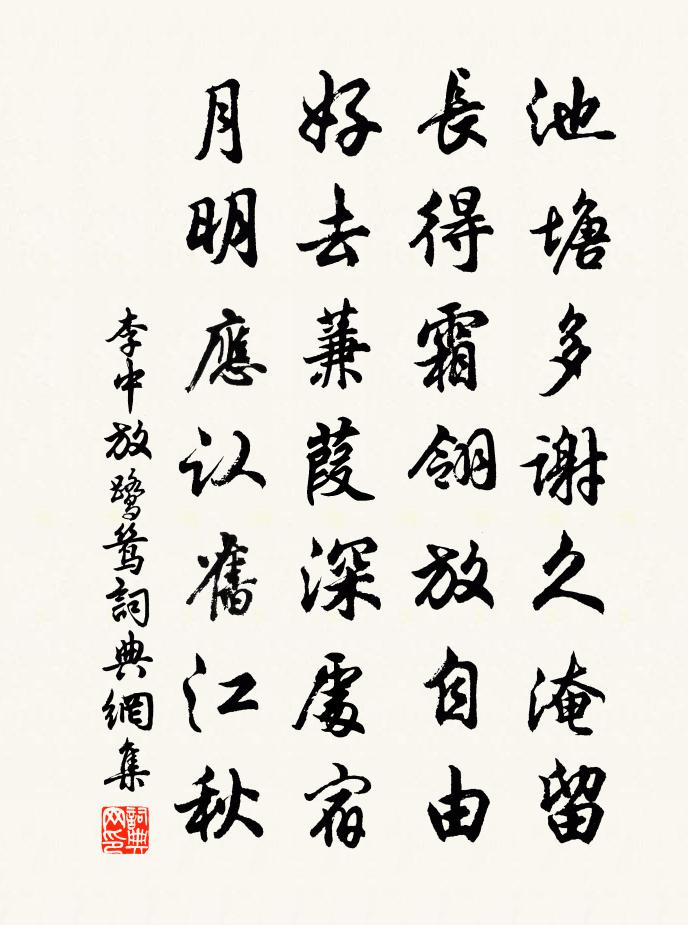 池塘多謝久淹留
長得霜翎放自由
好去蒹葭深處宿
月明應認舊江秋
李中放鷺鷥詞典網集
詞典网印